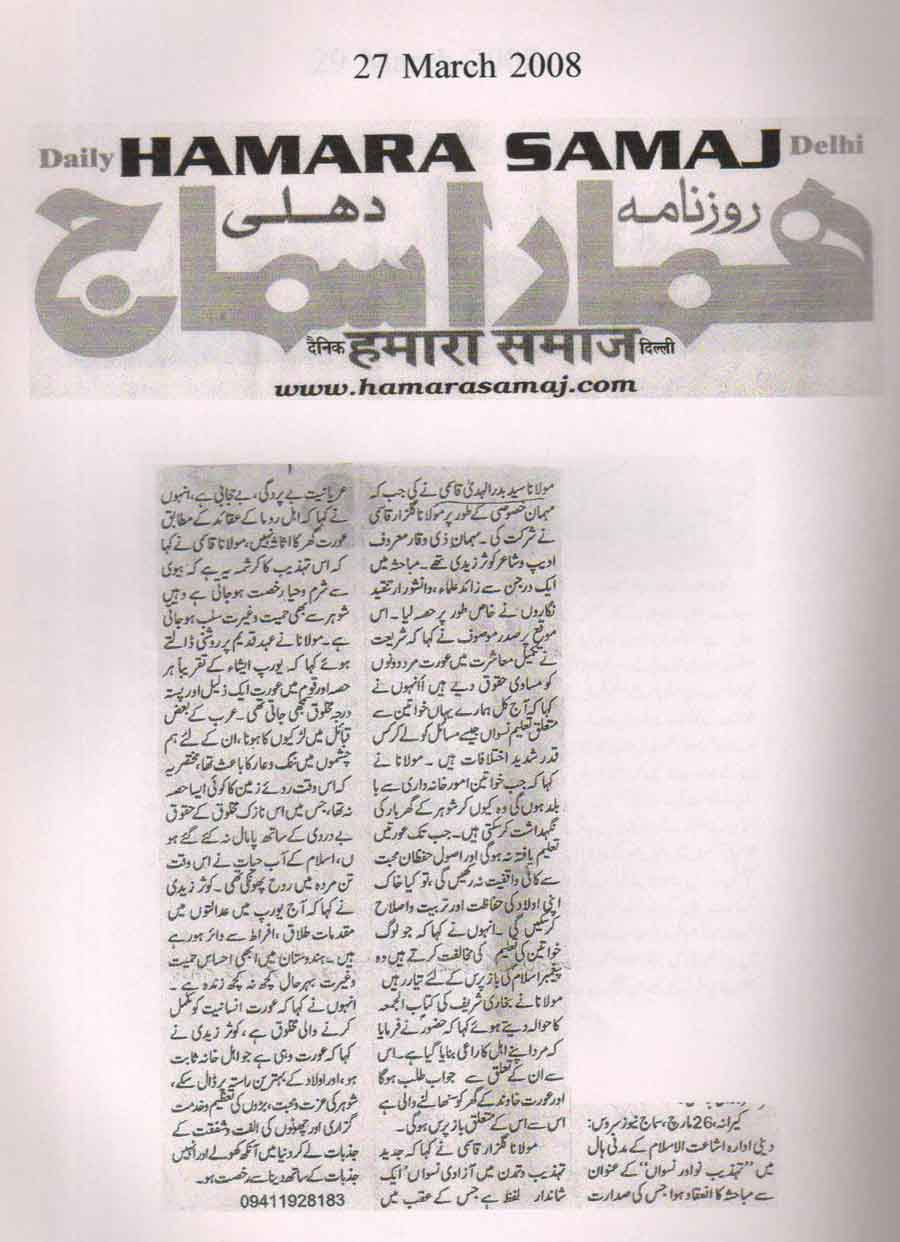 27 March 2008
Daily HAMARA SAMAJ Delhi
روزنامہ دهلی
همارا سماج
दैनिक हमारा समाज दिल्ली
www.hamarasamaj.com
کیرانہ، 26 مارچ، سماج نیوز سروس:
دینی ادارہ اشاعت الاسلام کے مدنی ہال
میں ”تہذیب نو اور نسواں“ کے عنوان
سے مباحثہ کا انعقاد ہوا جس کی صدارت
مولانا سید بدر الہدیٰ قاسمی نے کی جب کہ
مہمان خصوصی کے طور پر مولانا گلزار قاسمی
نے شرکت کی۔ مہمان ذی وقار معروف
ادیب و شاعر کوثر زیدی تھے۔ مباحثہ میں
ایک درجن سے زائد علماء، دانشور ارتنقید
نگاروں نے خاص طور پر حصہ لیا۔ اس
موقع پر صدر موصوف نے کہا کہ شریعت
نے تکمیل معاشرت میں عورت مرد دونوں
کو مساوی حقوق دیے ہیں اانہوں نے
کہا کہ آج کل ہمارے یہاں خواتین سے
متعلق تعلیم نسواں جیسے مسائل کو لے کر کس
قدر شدید اختلافات ہیں۔ مولانا نے
کہا کہ جب خواتین امور خانہ داری سے با
بلد ہوں گی وہ کیوں کر شوہر کے گھر بار کی
نگہداشت کر سکتی ہیں۔ جب تک عورتیں
تعلیم یافتہ نہ ہو گی اور اصول حفظان محبت
سے کافی واقفیت نہ رکھیں گی، تو کیا خاک
اپنی اولاد کی حفاظت اور تربیت و اصلاح
کر سکیں گی۔ انہوں نے کہا کہ جو لوگ
خواتین کی تعلیم کی مخالفت کرتے ہیں وہ
پیغمبر اسلام کی باز پرس کے لئے تیار رہیں
مولانا نے بخاری شریف کی کتاب الجمعہ
کا حوالہ دیتے ہوئے کہا کہ حضورؐ نے فرمایا
کہ مرد اپنے اہل کا راعی بنایا گیا ہے۔ اس
سے ان کے تعلق سے جواب طلب ہوگا
اور عورت خاوند کے گھر کو سنبھالنے والی ہے
اس سے اس کے متعلق باز پرس ہوگی۔
مولانا گلزار قاسمی نے کہا کہ جدید
تہذیب و تمدن میں آزادی نسواں ’ایک
شاندار لفظ ہے جس کے عقب میں
عریانیت بے پردگی، بے حجابی ہے، انہوں
نے کہا کہ اہل روما کے عقائد کے مطابق
عورت گھر کا اثاثہ نہیں، مولانا قاسمی نے کہا
کہ اس تہذیب کا کرشمہ یہ ہے کہ بیوی
سے شرم و حیا رخصت ہو جاتی ہے وہیں
شوہر سے بھی حمیت و غیرت سلب ہو جاتی
ہے۔ مولانا نے عہد قدیم پر روشنی ڈالتے
ہوئے کہا کہ یورپ ایشاء کے تقریباً ہر
حصہ اور قوم میں عورت ایک ذلیل اور پستہ
درجہ مخلوق سمجھی جاتی تھی۔ عرب کے بعض
قبائل میں لڑکیوں کا ہونا، ان کے لئے ہم
چشموں میں ننگ و عار کا باعث تھا، مختصر یہ
کہ اس وقت روئے زمین کا کوئی ایسا حصہ
نہ تھا، جس میں اس نازک مخلوق کے حقوق
بے دردی کے ساتھ پامال نہ کئے گئے ہو
ں، اسلام کے آب حیات نے اس وقت
تن مردہ میں روح پھونکی تھی۔ کوثر زیدی
نے کہا کہ آج یورپ میں عدالتوں میں
مقدمات طلاق، افراط سے دائر ہو رہے
ہیں۔ ہندوستان میں ابھی احساس حمیت
و غیرت بہر حال کچھ نہ کچھ زندہ ہے۔
انہوں نے کہا کہ عورت انسانیت کو مکمل
کرنے والی مخلوق ہے، کوثر زیدی نے
کہا کہ عورت وہی ہے جو اہل خانہ ثابت
ہو، اور اولاد کے بہترین راستہ پر ڈال سکے،
شوہر کی عزت و محبت، بڑوں کی تعظیم و خدمت
گزاری اور چھوٹوں کی الفت و شفقت کے
جذبات لے کر دنیا میں آنکھ کھولے اور انہیں
جذبات کے ساتھ دینا سے رخصت ہو۔
09411928183